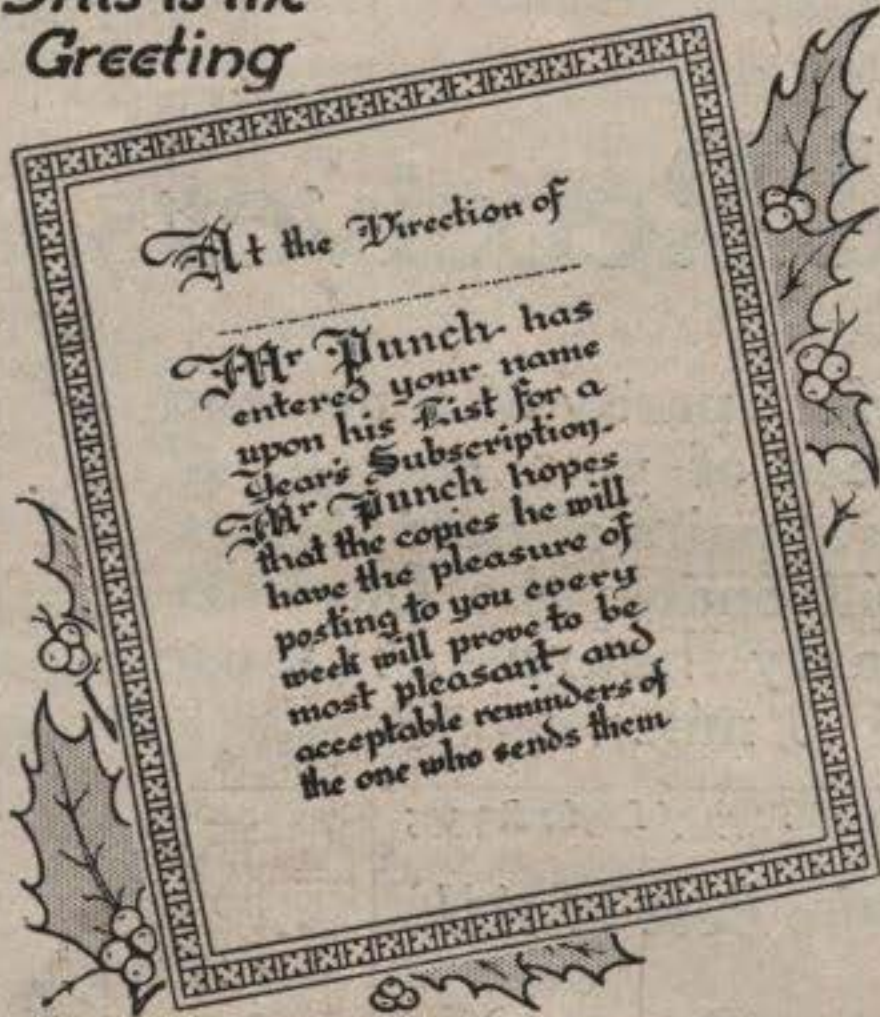 This is the
Greeting
At the Direction of
Mr Punch has
entered your name
upon his List for a
Year's Subscription.
Mr Punch hopes
that the copies he will
have the pleasure of
posting to you every
week will prove to be
most pleasant and
acceptable reminders of
the one who sends them